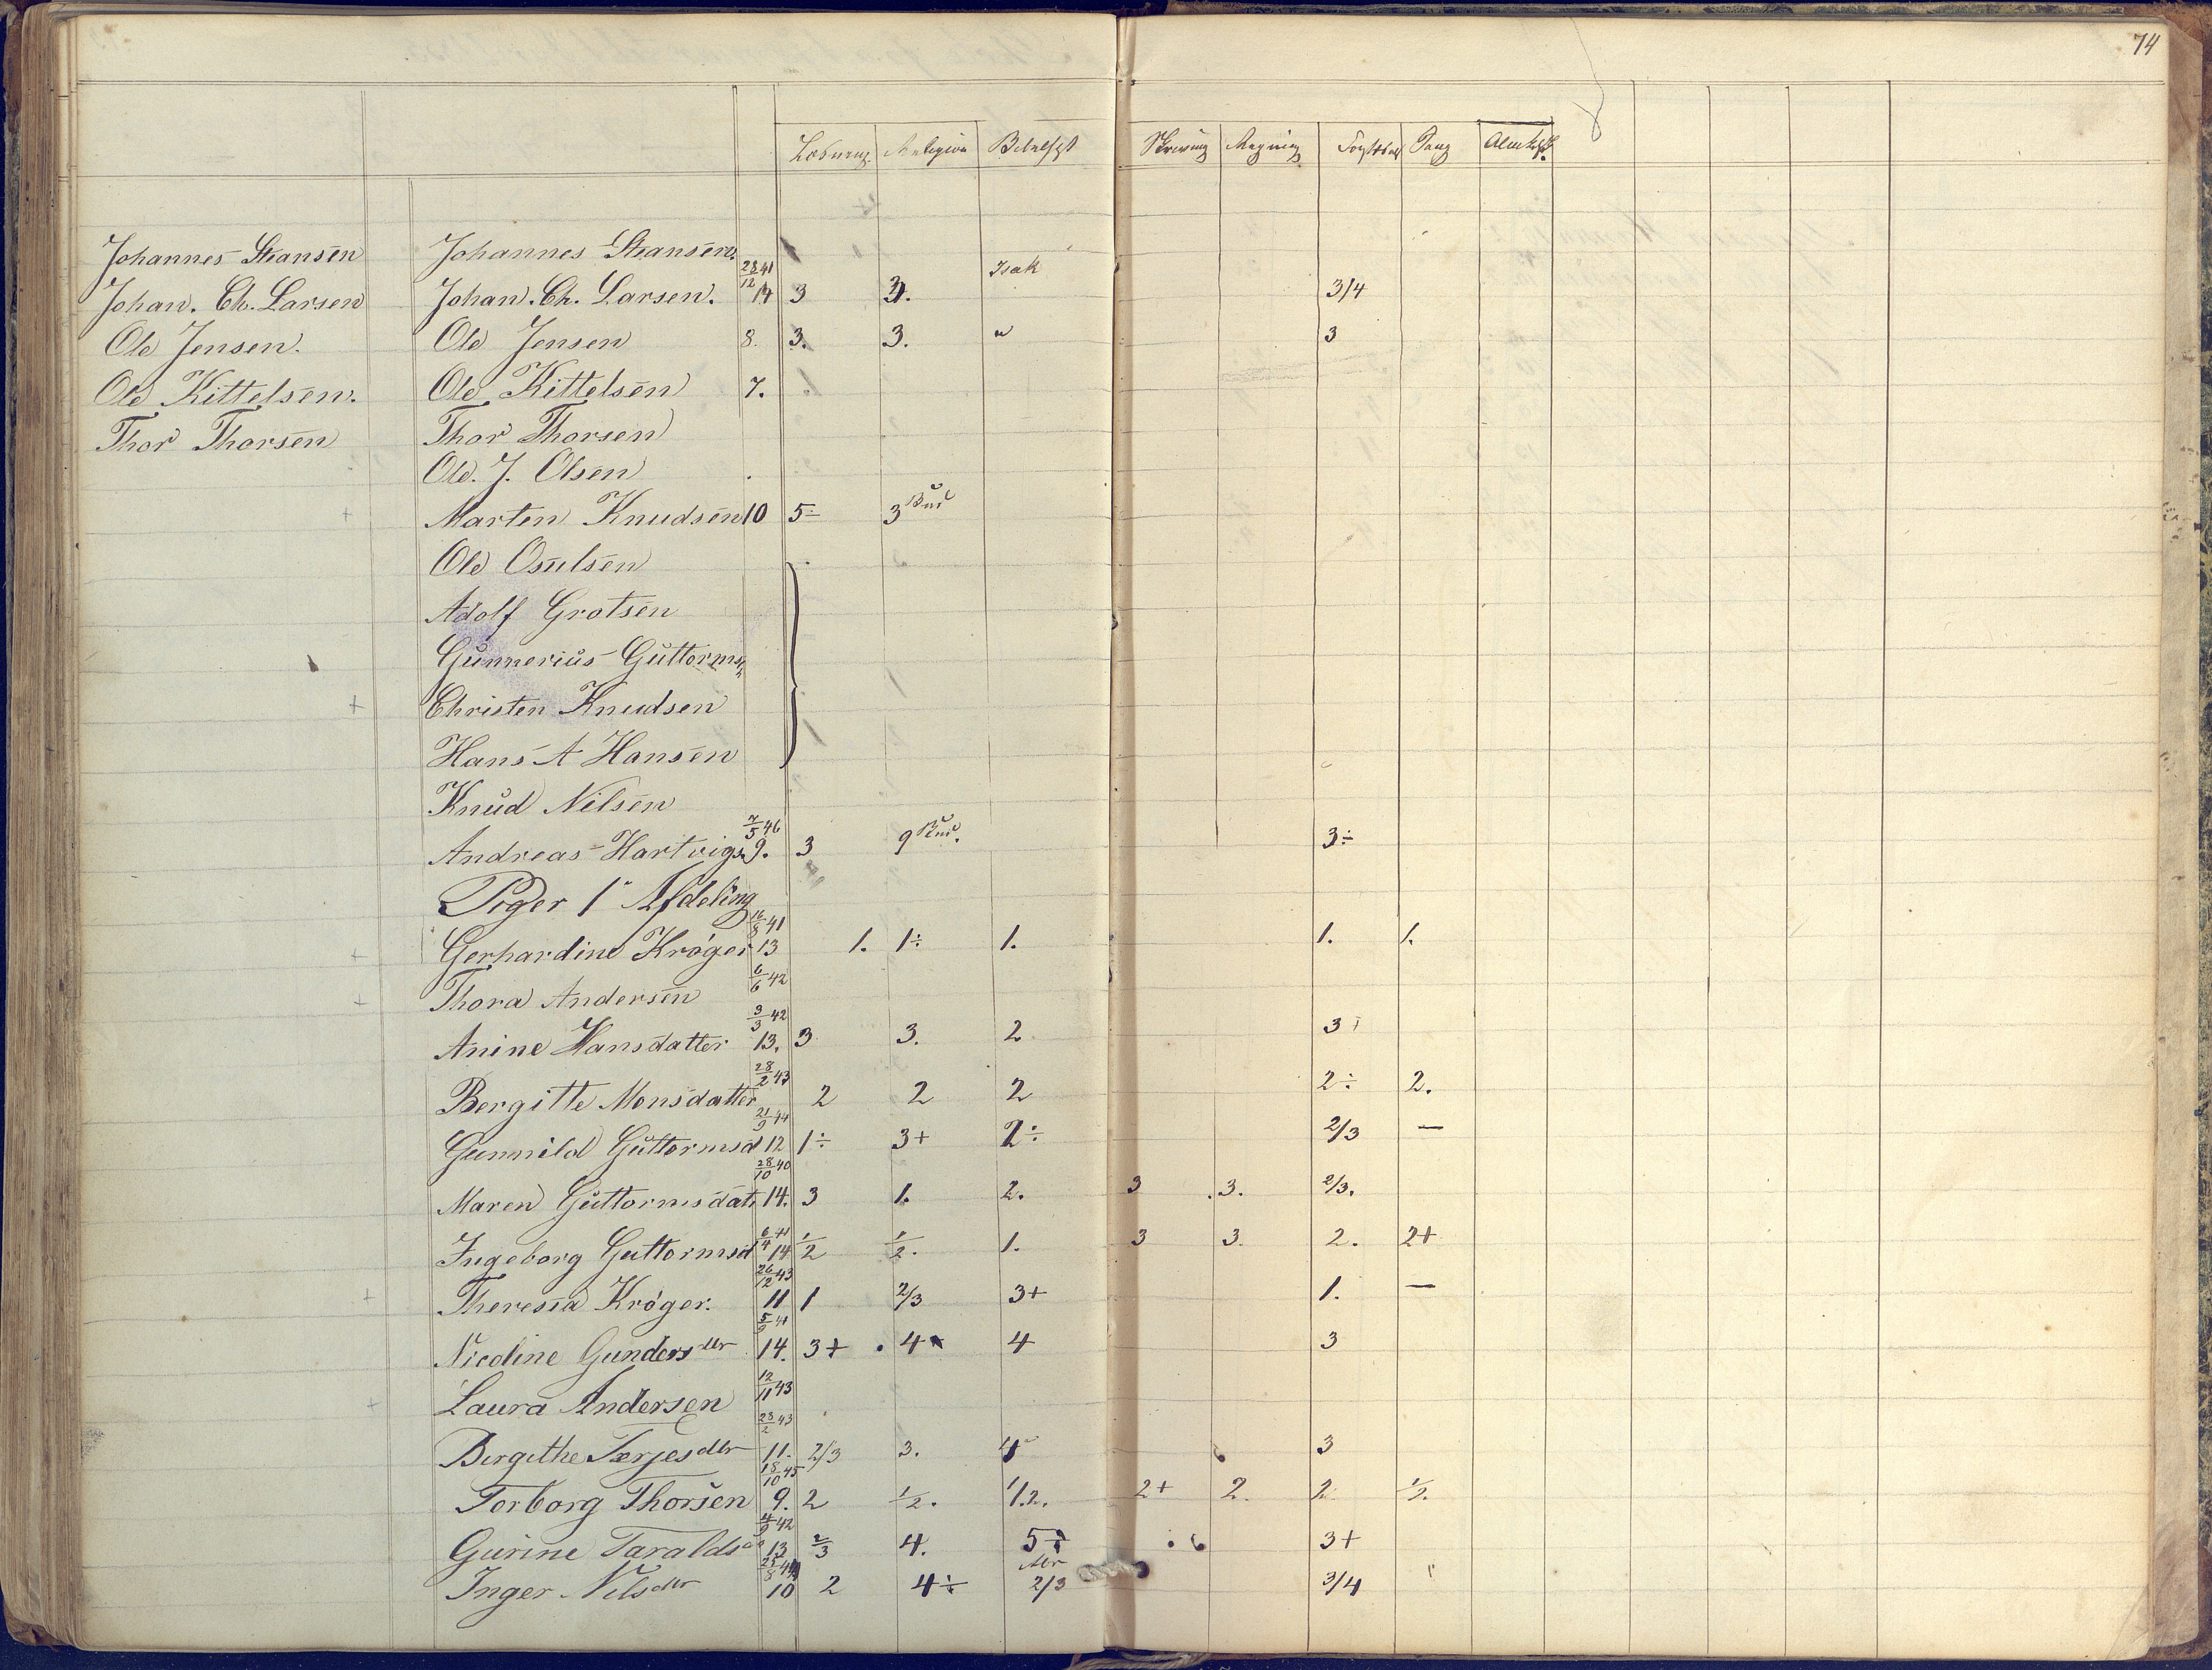 74
Læsning Religion Bibelhist Skrivning Regning Forstand Sang
Johannes Stiansen Johannes Stiansen
Johan. Ch. Larsen Johan. Ch. Larsen. 28/12 41 14 3 3. Isak 3/4
Ole Jensen. Ole Jensen 8. 3. 3. " 3
Ole Kittelsen. Ole Kittelsen 7.
Thor Thorsen Thor Thorsen
Ole. J. Olsen
Marten Knudsen 10 5÷ 3 Bud
Ole Osulsen
Adolf Grotsen
Gunnerius Guttorms
Christen Knudsen
Hans A Hansen
Knud Nilsen
Andreas Hartvigs. 7/5 46 9. 3 9 Bud. 3÷
Piger 1ste Afdeling
Gerhardine Krøger 16/8 41 13 1. 1÷ 1. 1. 1.
Thora Andersen 6/6 42
Anine Hansdatter 3/3 42 13. 3 3. 2 3+
Bergitte Monsdatter 28/2 43 2 2 2 2÷ 2.
Gunnild Guttormsd 21/9 44 12 1÷ 3+ 2÷ 2/3 —
Maren Guttormsdatr 28/10 40 14. 3 1. 2. 3 3. 2/3.
Ingeborg Guttormsd 6/4 41 14 1/2 1/2. 1. 3 3. 2. 2+
Theresia Krøger. 26/12 43 11 1 2/3 3+ 1. —
Nicoline Gundersdtr 5/9 41 14. 3+ 4 4 3
Laura Andersen 12/11 43
Birgithe Terjesdtr 23/2 43 11. 2/3 3. 4 3
Torborg Thorsen 18/10 45 9. 2 1/2. 1/2. 2+ 2. 2 1/2.
Gurine Taralds 4/9 42 13 2/3 4. 5÷ 3+
Inger Nilsdtr 10 2 4÷ 2/3 3/4 "